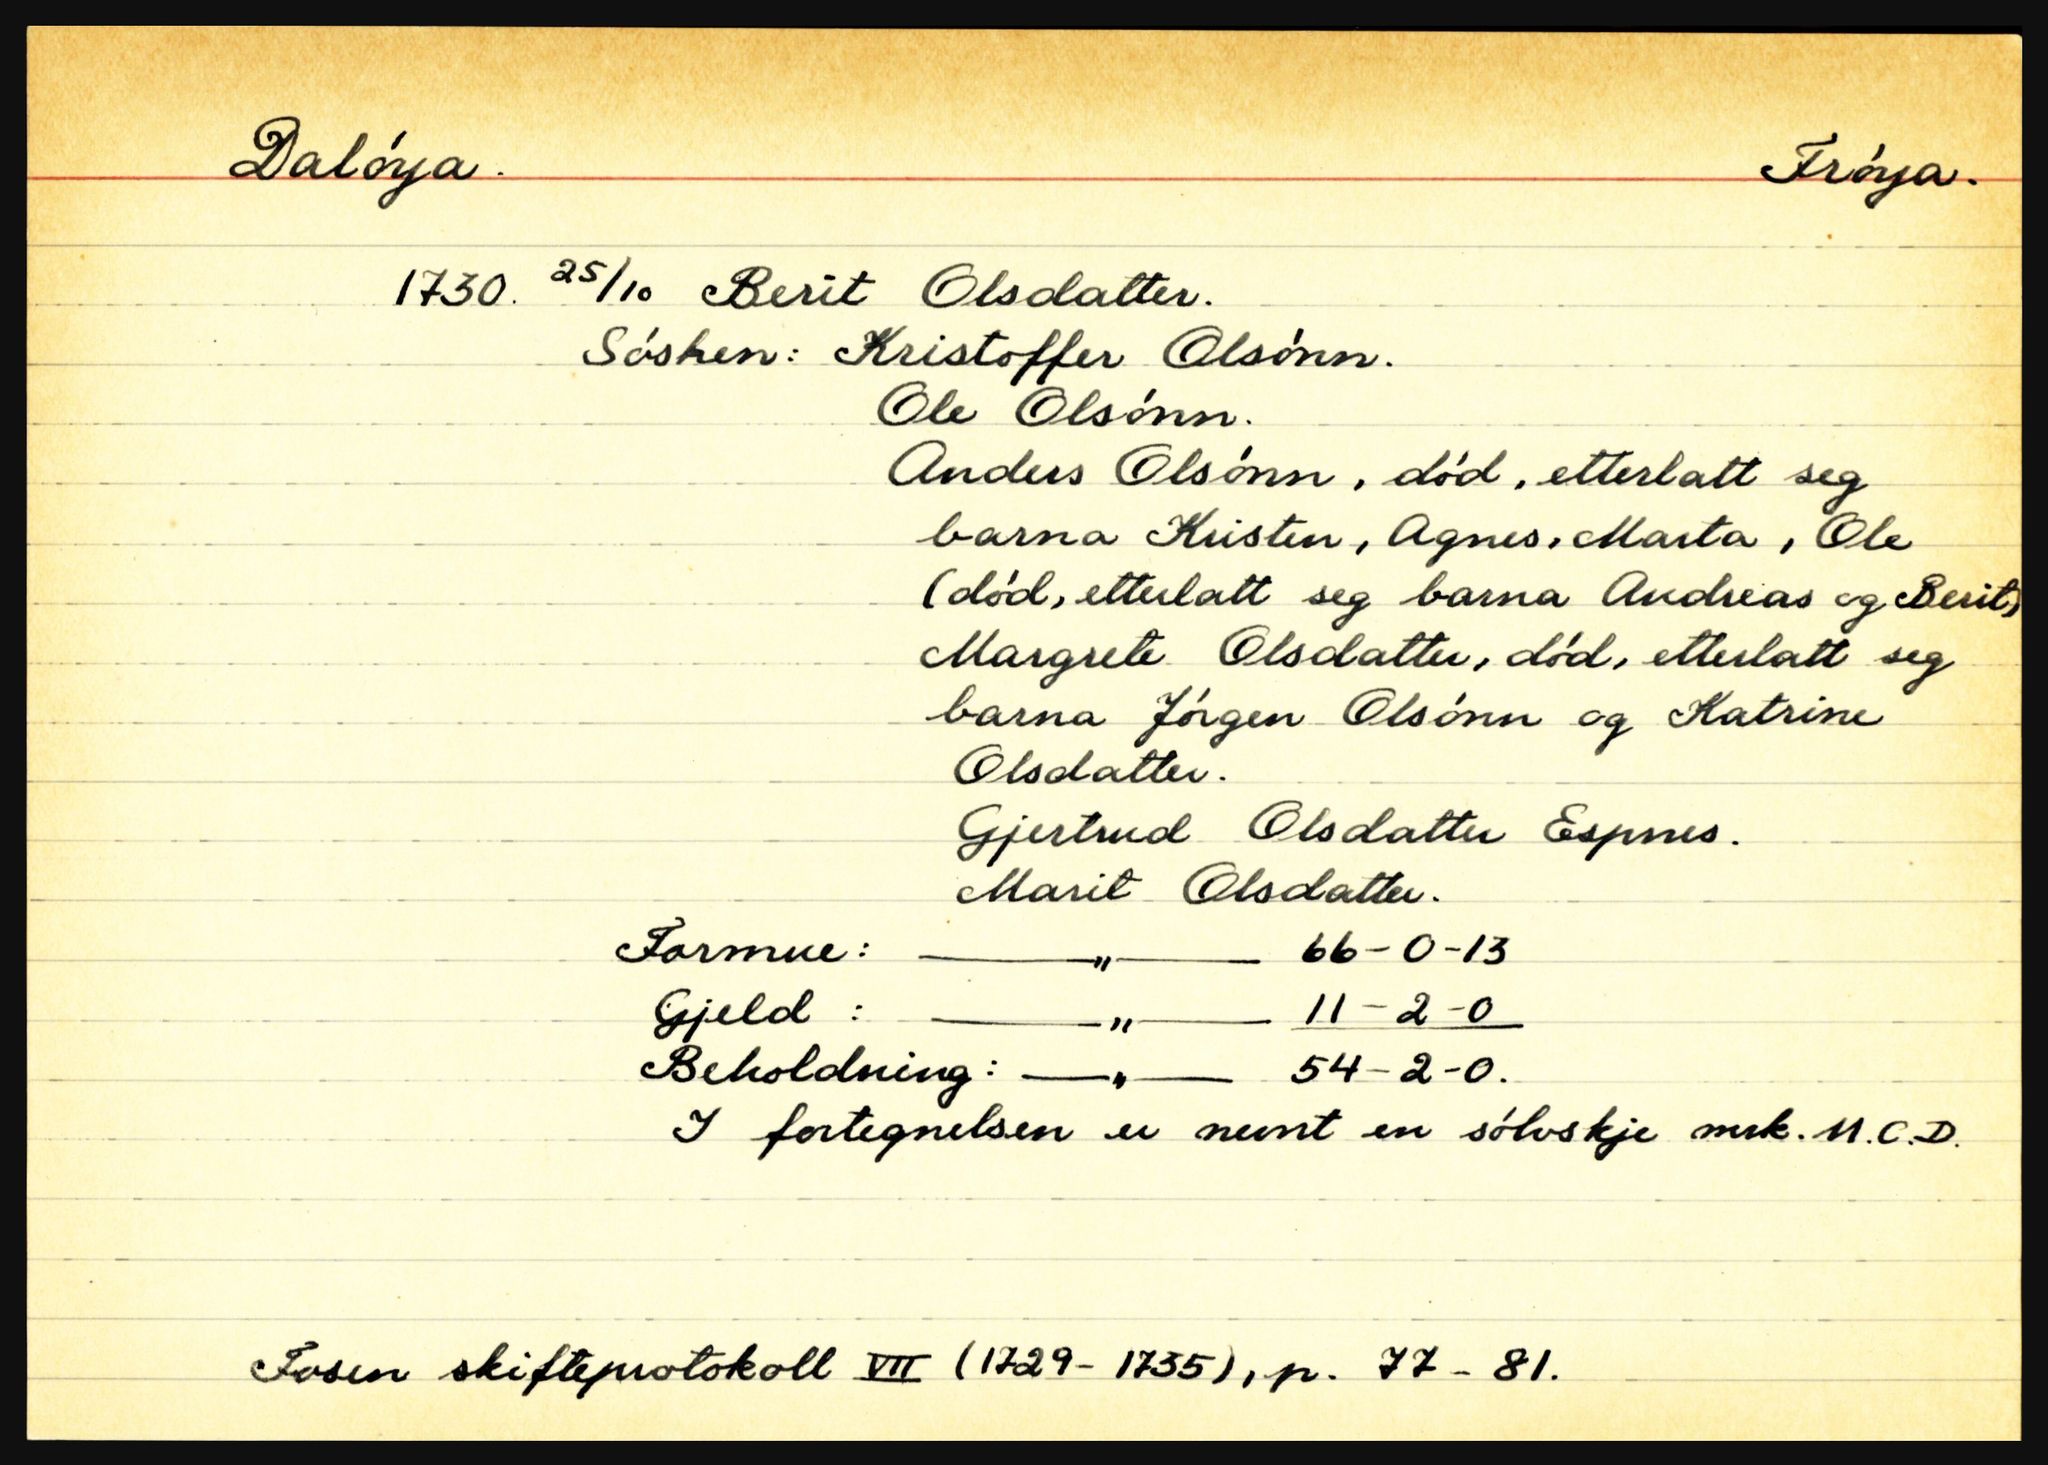 Dalóya. Fróya.
1730. 25/10 Berit Olsdatter.
Sósken: Kristoffer Olsónn.
Ole Olsónn.
Anders Olsónn, dód, etterlatt seg
barna Kristen, Agnes, Marta, Ole
(dód, etterlatt seg barna Andreas og Berit)
Margrete Olsdatter, dód, etterlatt seg
barna Jórgen Olsónn og Katrine
Olsdatter.
Gjertrud Olsdatter Espnes.
Marit Olsdatter.
Formue: —— " —— 66-0-13
Gjeld : —— " —— 11-2-0
Beholdning: —— " —— 54-2-0.
I fortegnelsen er nevnt en sólvskje mrk. M.C.D.
Fosen skifteprotokoll VII (1729-1735), p. 77-81.